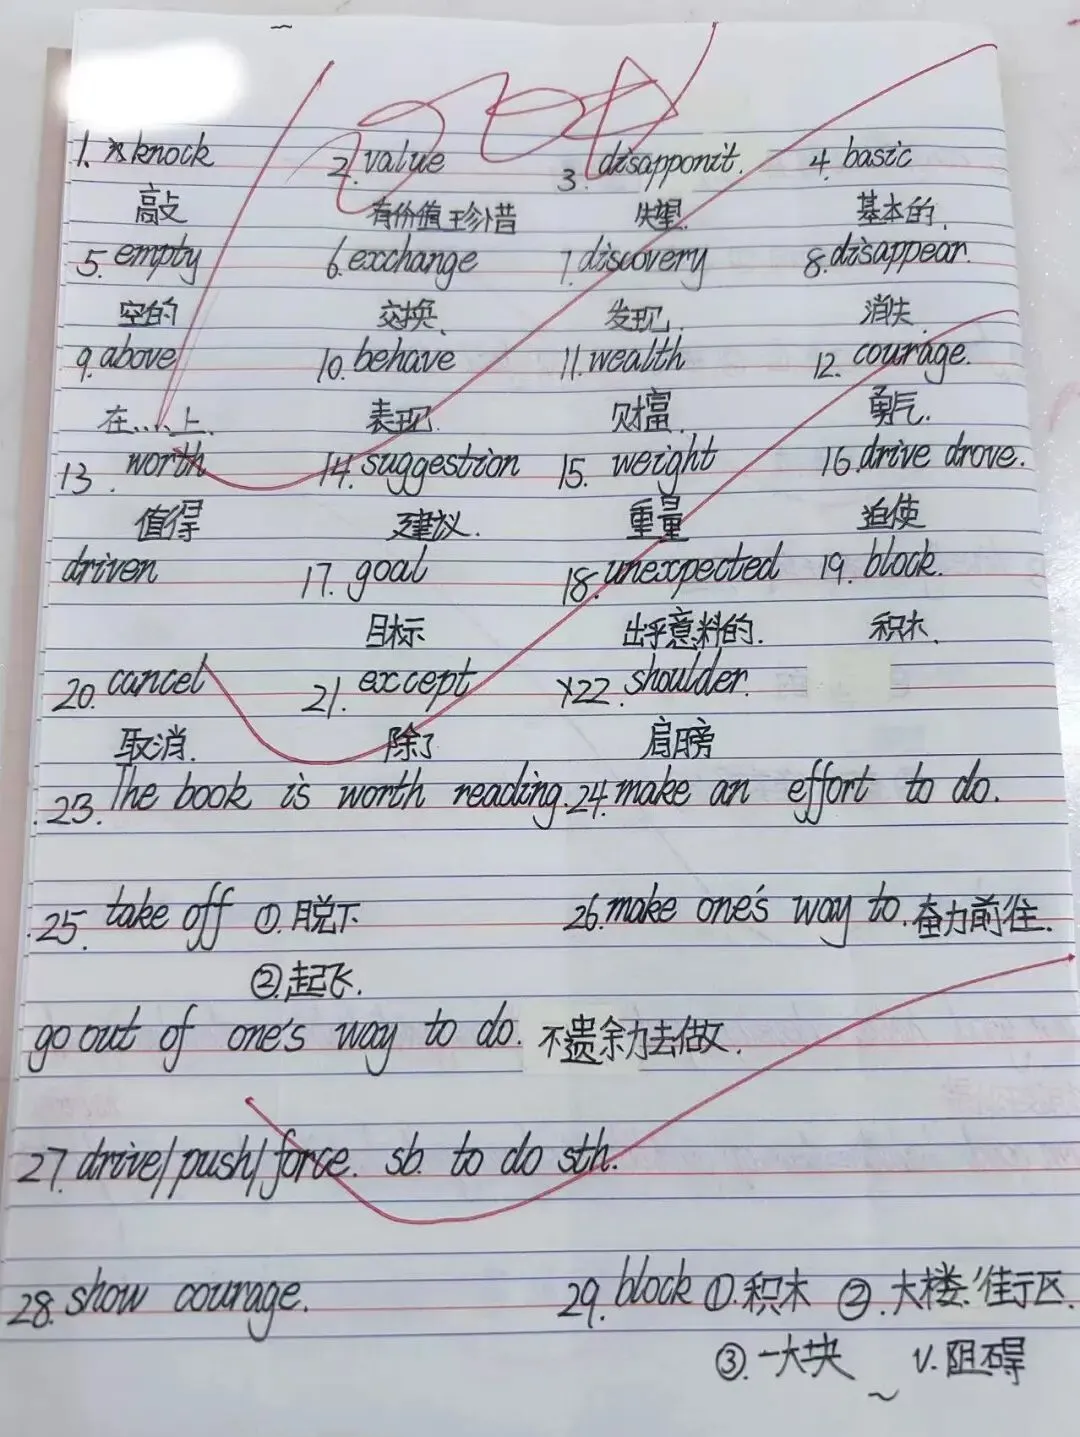 1. knock 2. value 3. disapponit. 4. basic
敲 有价值 珍惜 失望 基本的.
5. empty 6. exchange 7. discovery 8. disappear.
空的 交换. 发现. 消失.
9. above 10. behave 11. wealth 12. courage.
在....上. 表现. 财富. 勇气.
13. worth 14. suggestion 15. weight 16. drive drove.
值得 建议. 重量 迫使
driven 17. goal 18. unexpected 19. block.
目标 出乎意料的. 积木.
20. cancel 21. except 22. shoulder.
取消. 除了 肩膀
23. The book is worth reading. 24. make an effort to do.
25. take off ①.脱下 26. make one's way to. 奋力前往.
②.起飞.
go out of one's way to do. 不遗余力去做.
27. drive/push/force. sb. to do sth.
28. show courage. 29. block ①.积木 ②.大楼.街区.
③.一大块 v.阻碍